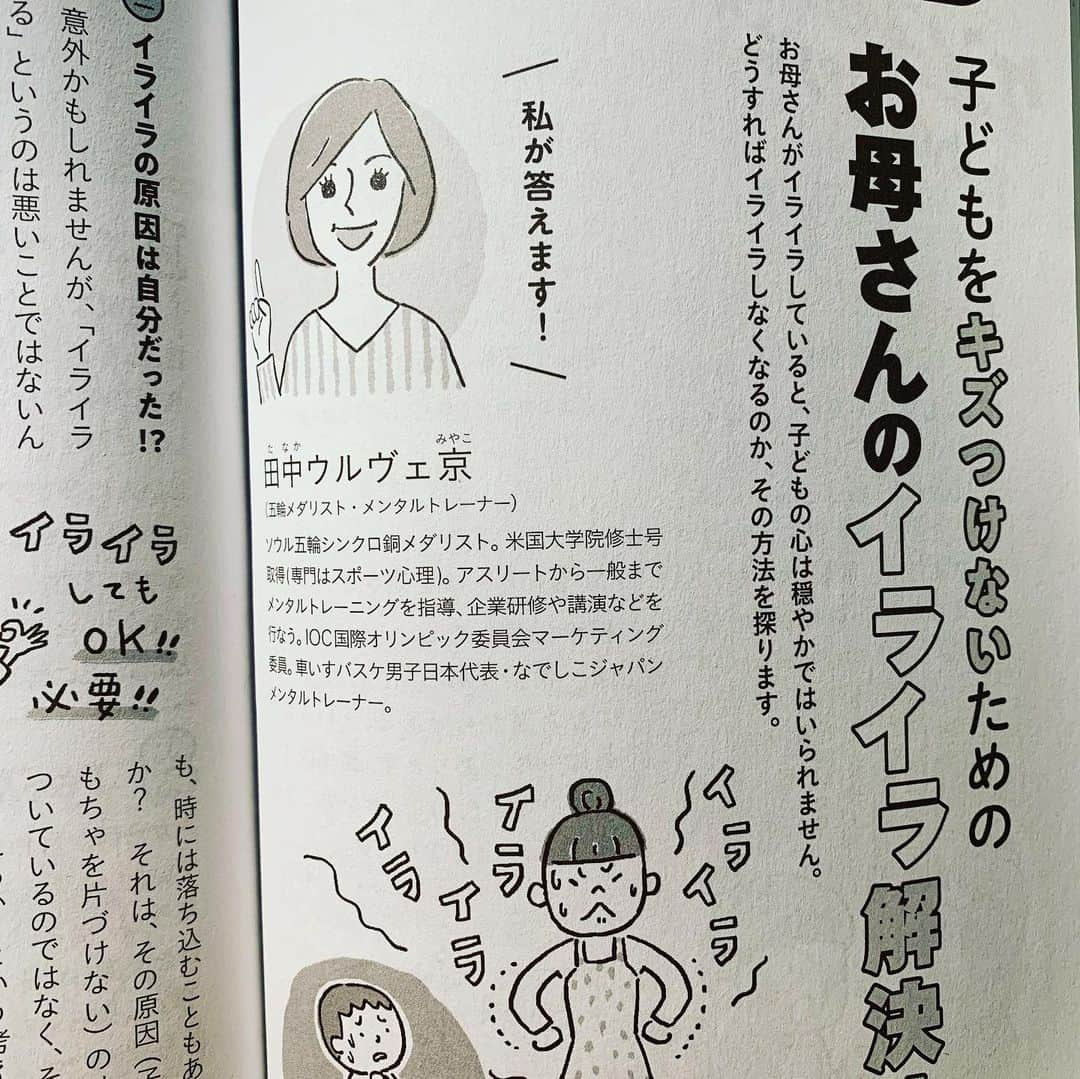 子どもをキズつけないための
お母さんのイライラ解決
お母さんがイライラしていると、子どもの心は穏やかではいられません。
どうすればイライラしなくなるのか、その方法を探ります。
私が答えます！
たなか みやこ
田中ウルヴェ京
（五輪メダリスト・メンタルトレーナー）
ソウル五輪シンクロ銅メダリスト。米国大学院修士号
取得(専門はスポーツ心理)。アスリートから一般まで
メンタルトレーニングを指導、企業研修や講演などを
行なう。IOC国際オリンピック委員会マーケティング
委員。車いすバスケ男子日本代表・なでしこジャパン
メンタルトレーナー。
イライラ
イライラ
イライラ
イライラの原因は自分だった!?
意外かもしれませんが、「イライラ
る」というのは悪いことではないん
イライラ
しても
OK!!
必要!!
も、時には落ち込むこともあ
か？ それは、その原因（
もちゃを片づけない）の
ついているのではなく、そ